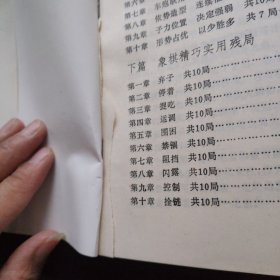 第七章 车炮联
第八章 依势造型 连续
第九章 子力位置 决定强弱 共10局
第十章 形势占优 以少胜多 共7局
下篇 象棋精巧实用残局
第一章 弃子 共10局
第二章 停着 共10局
第三章 捉吃 共10局
第四章 运调 共10局
第五章 围困 共10局
第六章 禁锢 共10局
第七章 阻挡 共10局
第八章 闪露 共10局
第九章 控制 共10局
第十章 拴链 共10局